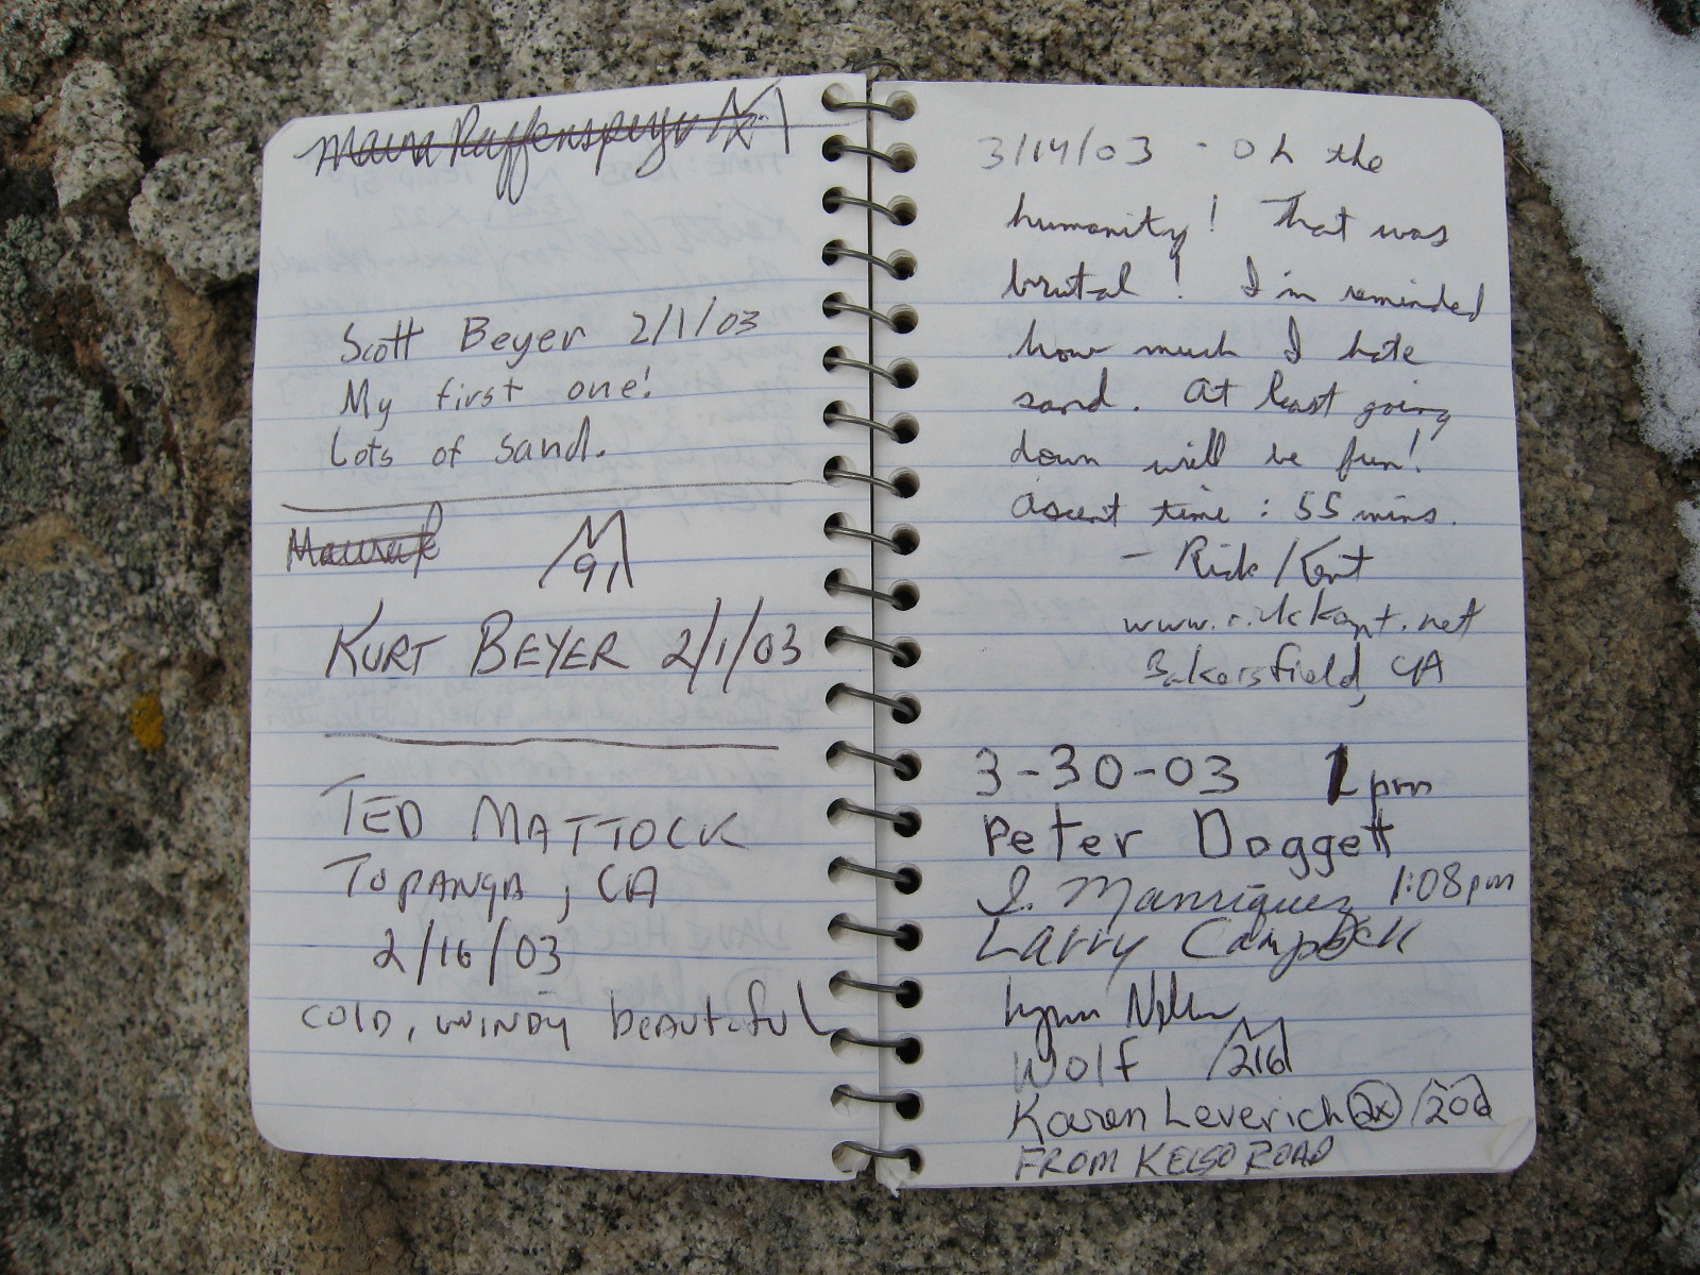 Maura Raffensperger
Scott Beyer 2/1/03
My first one!
Lots of sand.
91
KURT BEYER 2/1/03
TED MATTOCK
TOPANGA, CA
2/16/03
COLD, WINDY beautiful
3/14/03 - Oh the
humanity! That was
brutal! I'm reminded
how much I hate
sand. At least going
down will be fun!
Ascent time: 55 mins.
- Rick Kent
www.rickkent.net
Bakersfield, CA
3-30-03 1pm
Peter Doggett
I. Manriquez 1:08pm
Larry Campbell
Lynn
Wolf 216
Karen Leverich 2x 20
FROM KELSO ROAD